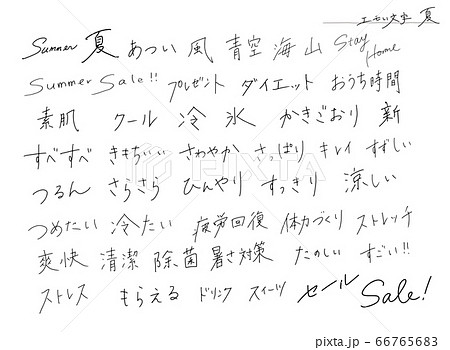 エモい文字 夏
Summer 夏 あつい 風 青空 海 山 Stay Home
Summer Sale!! プレゼント ダイエット おうち時間
素肌 クール 冷 氷 かきごおり 新
すべすべ きもちいい さわやか さっぱり キレイ すずしい
つるん さらさら ひんやり すっきり 涼しい
つめたい 冷たい 疲労回復 体力づくり ストレッチ
爽快 清潔 除菌 暑さ対策 たのしい すごい!!
ストレス もらえる ドリンク スイーツ セール Sale!
PIXTA
pixta.jp - 66765683